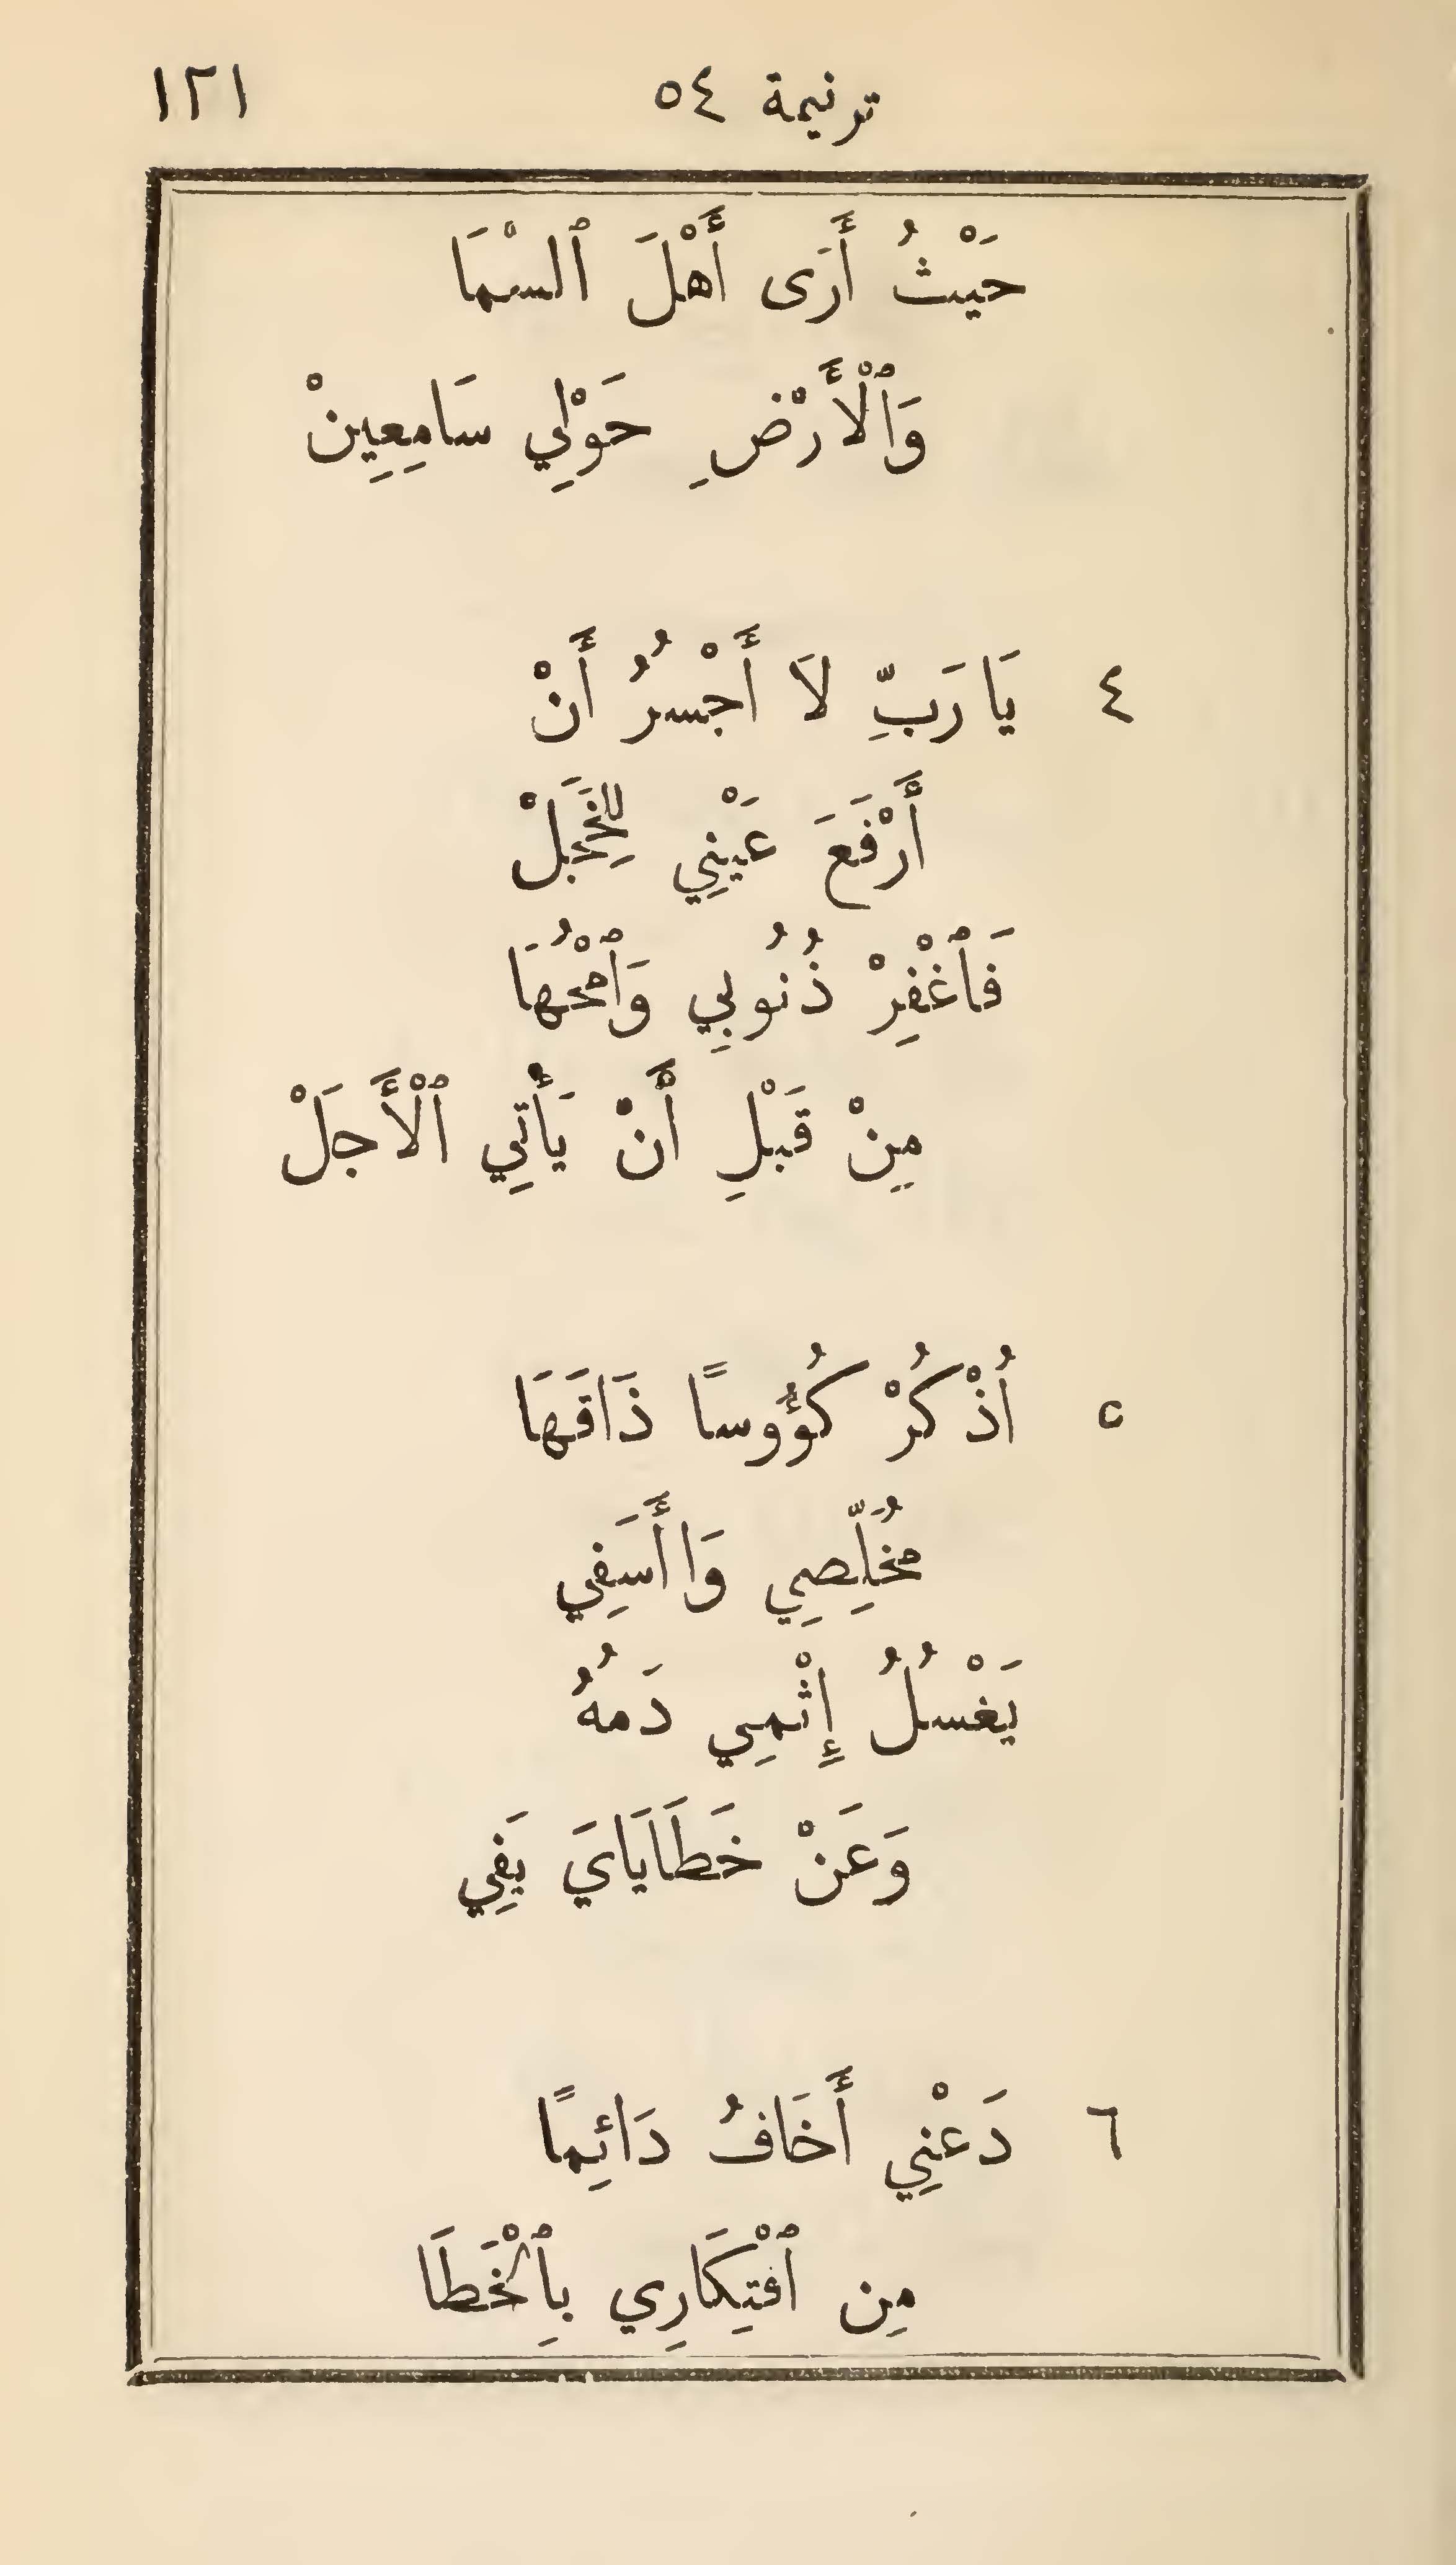 ترنيمة ٥٤ ١٢١
حَيْثُ أَرَى أَهْلَ ٱلسْمَا
وَٱلْأَرْضِ حَوْلِي سَامِعِينْ
٤ يَا رَبِّ لَا أَجْسرُ أَنْ
أَرْفَعَ عَيْنِي لِلْخَجَلْ
فَٱغْفِرْ ذُنُوبِي وَٱمْحُهَا
مِنْ قَبْلِ أَنْ يَأْتِي ٱلْأَجَلْ
٥ اُذْكُرْ كُؤُوسًا ذَاقَهَا
مُخَلِّصِي وَا أَسَفِي
يَغْسلُ إِثْمِي دَمهُ
وَعَنْ خَطَايَايَ يَفِي
٦ دَعْنِي أَخَافُ دَائِمًا
مِن ٱفْتِكَارِي بِٱلْخَطَا